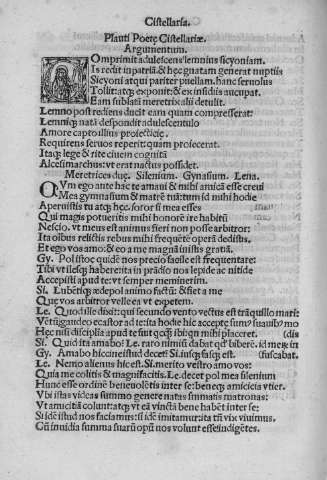 Cistellaria.
Plauti Poetę Cistellariæ.
Argumentum.
Omprimit adulescens lemnius sicyoniam.
Is redit in patriā & hęc gnatam generat nuptiis
Sicyoni atqui pariter puellam. hanc seruolus
Tollit: atq; exponit: & ex insidiis aucupat.
Eam sublatā meretrix alii detulit.
Lemno post rediens ducit eam quam compresserat:
Lemniq; natā despondit adulescentulo
Amore capto illius proiecticię.
Requirens seruos reperit: quam proiecerat.
Itaq; lege & rite ciuem cognitā
Alcesimarchus vt erat nactus possidet.
Meretrices duę. Silenium. Gynasium. Lena.
Vm ego ante hac te amaui & mihi amicā esse creui
Mea gymnasium & matrē tuā: tum id mihi hodie
Aperuistis tu atq; hęc. soror si mea esses
Qui magis potueritis mihi honorē ire habitū
Nescio. vt meus est animus fieri non posse arbitror:
Ita oībus relictis rebus mihi frequētē operā dedistis.
Et ego vos amo: & eo a me magnā inistis gratiā.
Gy. Pol istoc quidē nos precio facile est frequentare:
Tibi vt
Accepisti apud te: vt semper meminerim.
Si. Lubēti
Quę vos arbitror velle ea vt expetem.
Le. Quod ille dixit: qui secundo vento vectus est trāquillo mari:
Hęc nisi disciplā apud te fuit
Si. Quid ita amabo? Le. raro nimiū dabat
Gy. Amabo hiccine istud decet? Si. iusq; fasq; est. (fuscabat.
Le. Nemo alienus hic est. Si. merito vestro amo vos:
Quia me colitis & magnifacitis. Le. decet pol mea silenium
Hunc esse ordinē beneuolētis inter se: beneq; amicicia vtier.
Vbi istas videas summo genere natas summatis matronas:
Vt amicitiā colunt: atq; vt eā vinctā bene habēt inter se:
Si idē istud nos faciamus: si idē imitamur: ita tn̄ vix viuimus.
Cū inuidia summa suarū opū nos volunt esse indigētes.